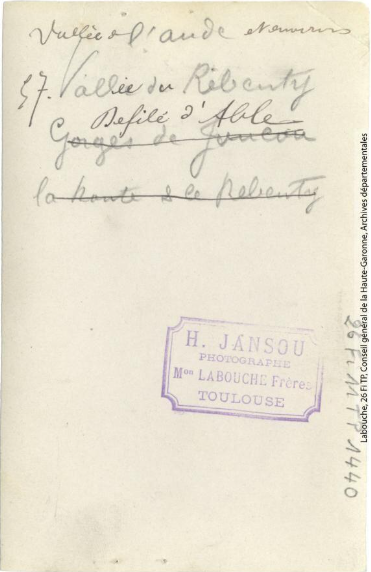 Vallée de l'aude et environs
57. Vallée du Rébenty
Défilé d'Able
Gorges de Joucou
la Route & le Rébenty
H. JANSOU
PHOTOGRAPHE
Mon LABOUCHE Frères
TOULOUSE
26 FI MTP 1440
Labouche, 26 Fi TP, Conseil général de la Haute-Garonne, Archives départementales